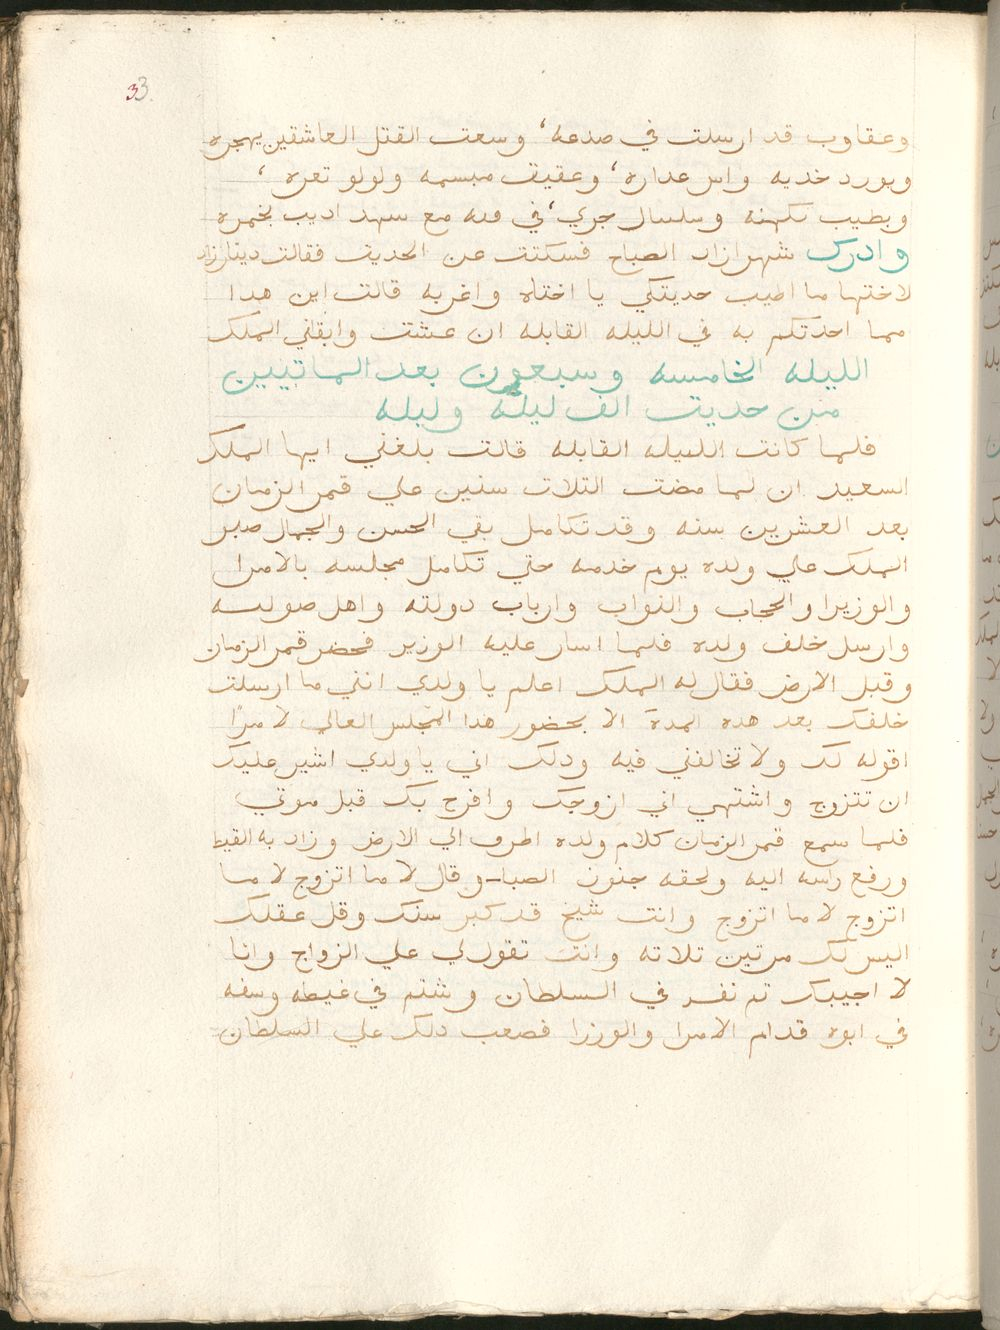 33
وعقاوب قد ارسلت في صدعه، وسعت القتل العاشقين يهجره
وبورد خديه واس عداره، وعقيق مبسمه ولولو تعره،
وبطيب نكهته وسلسال جري، في فمه مع سهد اديب بخمره
وادرك شهرازاد الصباح فسكتت عن الحديث فقالت دينارزاد
لاختها ما اطيب حديتكي يا اختاه واغربه قالت اين هدا
مما احدتكم به في الليله القابله ان عشت وابقني الملك
الليله الخامسه وسبعون بعد الماتيين
من حديت الف ليله وليله
فلما كانت الليله القابله قالت بلغني ايها الملك
السعيد ان لما مضت التلات سنين علي قمر الزمان
بعد العشرين سنه وقد تكامل بقي الحسن والجمال صبر
الملك علي ولده يوم خدمه حتي تكامل مجلسه بالامرا
والوزيرا والحجاب والنواب وارباب دولته واهل صولته
وارسل خلف ولده فلما اسار عليه الوزير فحضر قمر الزمان
وقبل الارض فقال له الملك اعلم يا ولدي انني ما ارسلت
خلفك بعد هده المدة الا بحضور هدا المجلس العالي لامرًا
اقوله لك ولا تخالفني فيه ودلك اني يا ولدي اشير عليك
ان تتزوج واشتهي اني ازوجك وافرح بك قبل موتي
فلما سمع قمر الزمان كلام ولده اطرف الي الارض وزاد به القيط
ورفع راسه اليه ولحقه جنون الصبا وقال لا ما اتزوج لا ما
اتزوج لا ما اتزوج وانت شيخ قد كبر سنك وقل عقلك
اليس لك مرتين تلاته وانت تقولي علي الزواج وانا
لا اجيبك تم نفر في السلطان وشتم في غيطه وسفه
في ابوه قدام الامرا والورزا فصعب دلك علي السلطان